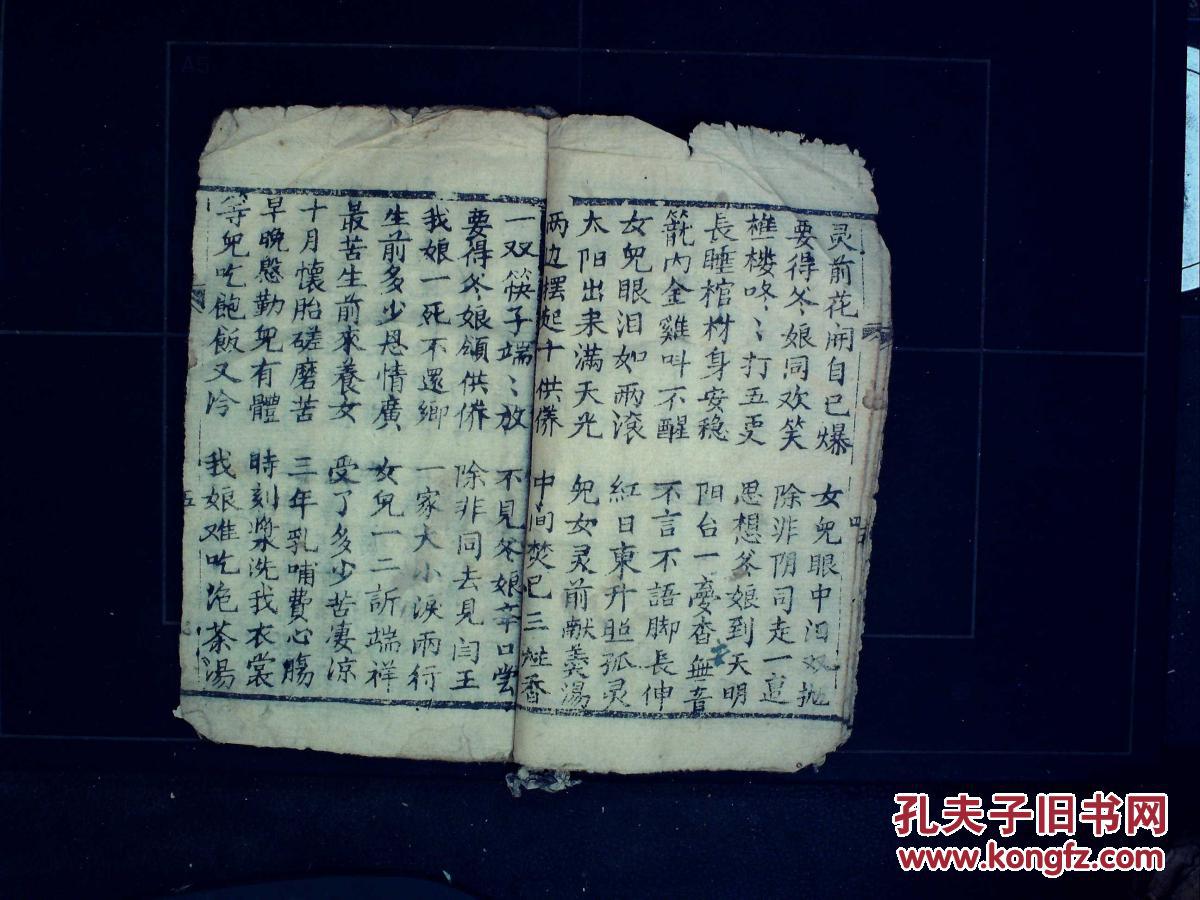 灵前花開自己爆 女兒眼中泪双抛
要得爷娘同欢笑 除非阴司走一遭
樵楼咚〻打五更 思想爷娘到天明
長睡棺材身安穏 阳台一夢杳無音
籠内金雞叫不醒 不言不語脚長伸
女兒眼泪如雨滚 紅日東升照孤灵
太阳出来满天光 兒女灵前献羹湯
两边摆起十供养 中间焚起三炷香
一双筷子端〻放 不見爷娘辛口尝
要得爷娘領供养 除非同去見闫王
我娘一死不還鄉 一家大小淚兩行
生前多少恩情廣 女兒一二訴端祥
最苦生前來養女 受了多少苦凄涼
十月懷胎磋磨苦 三年乳哺費心腸
早晚慇勤兒有體 時刻漿洗我衣裳
等兒吃飽飯又冷 我娘难吃泡茶湯
四
五
A5
孔夫子旧书网
www.kongfz.com